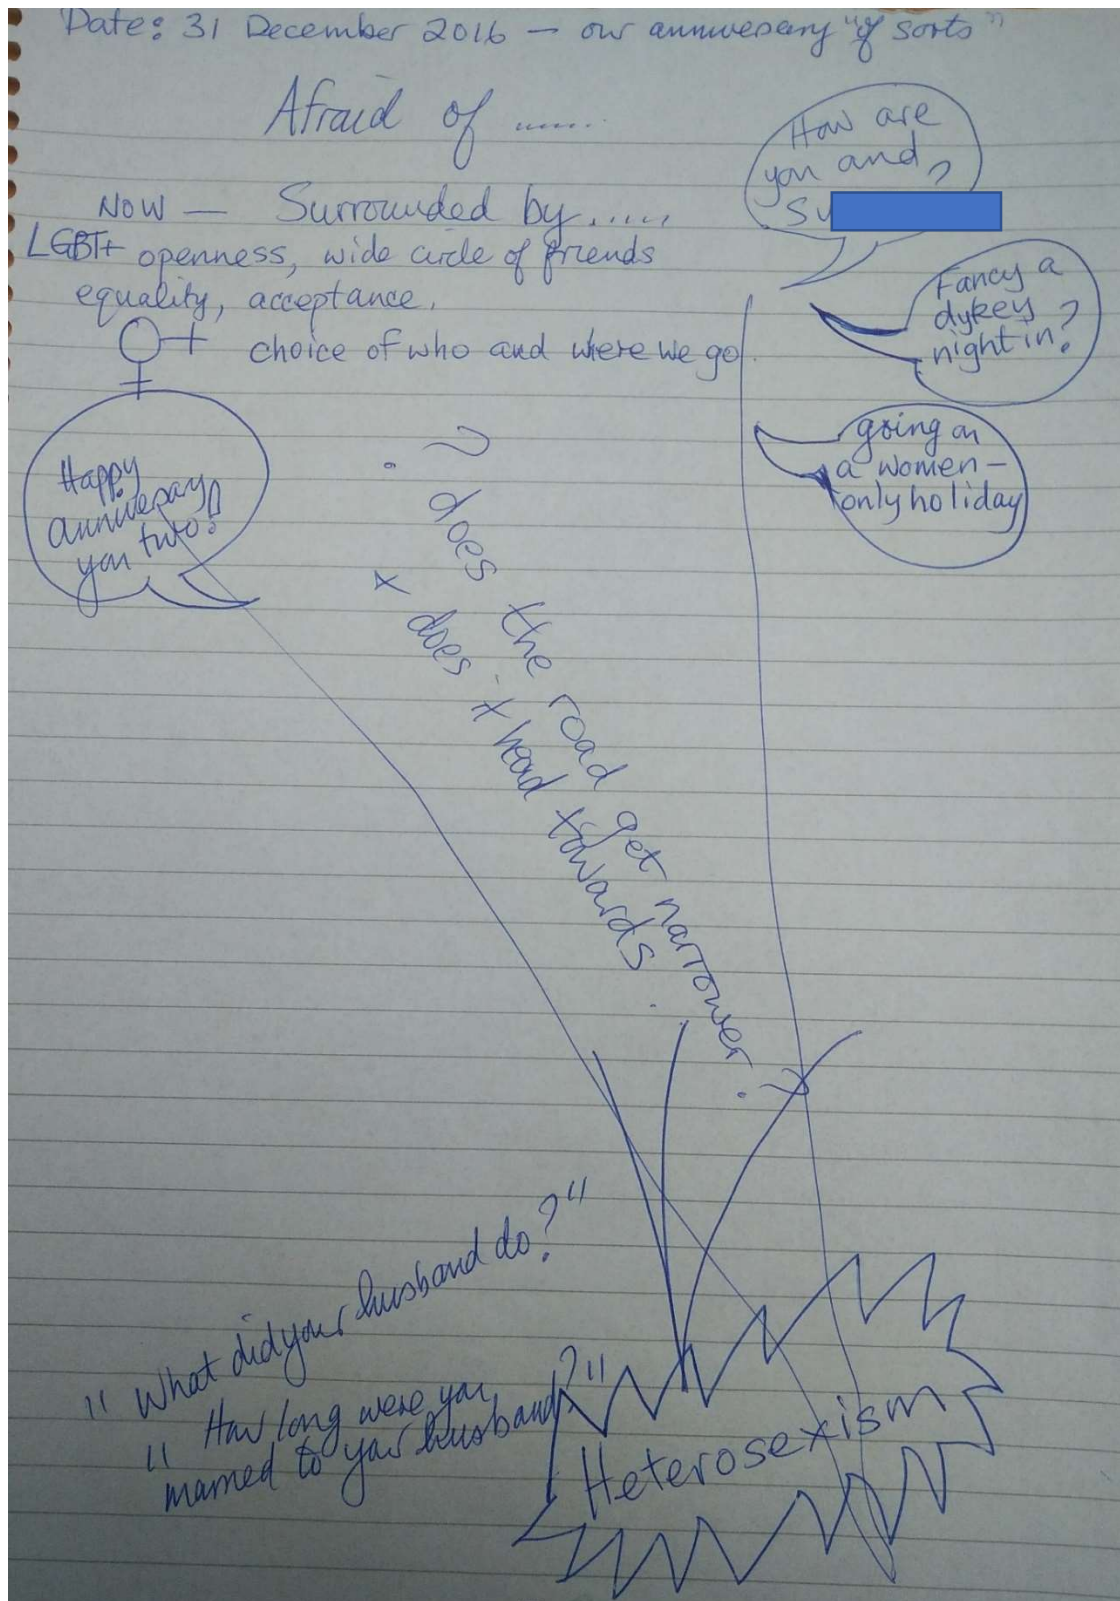 Date: 31 December 2016 — our anniversary "of sorts"
Afraid of ......
How are
you and
Su
?
NOW — Surrounded by......
LGBT+ openness, wide circle of friends
equality, acceptance.
choice of who and where we go.
Fancy a
dykey
night in?
going on
a women-
only holiday
Happy
anniversary
you two!
? does the road get narrower?
x does x head towards.
"What did your husband do?"
"How long were you
married to your husband?"
Heterosexism